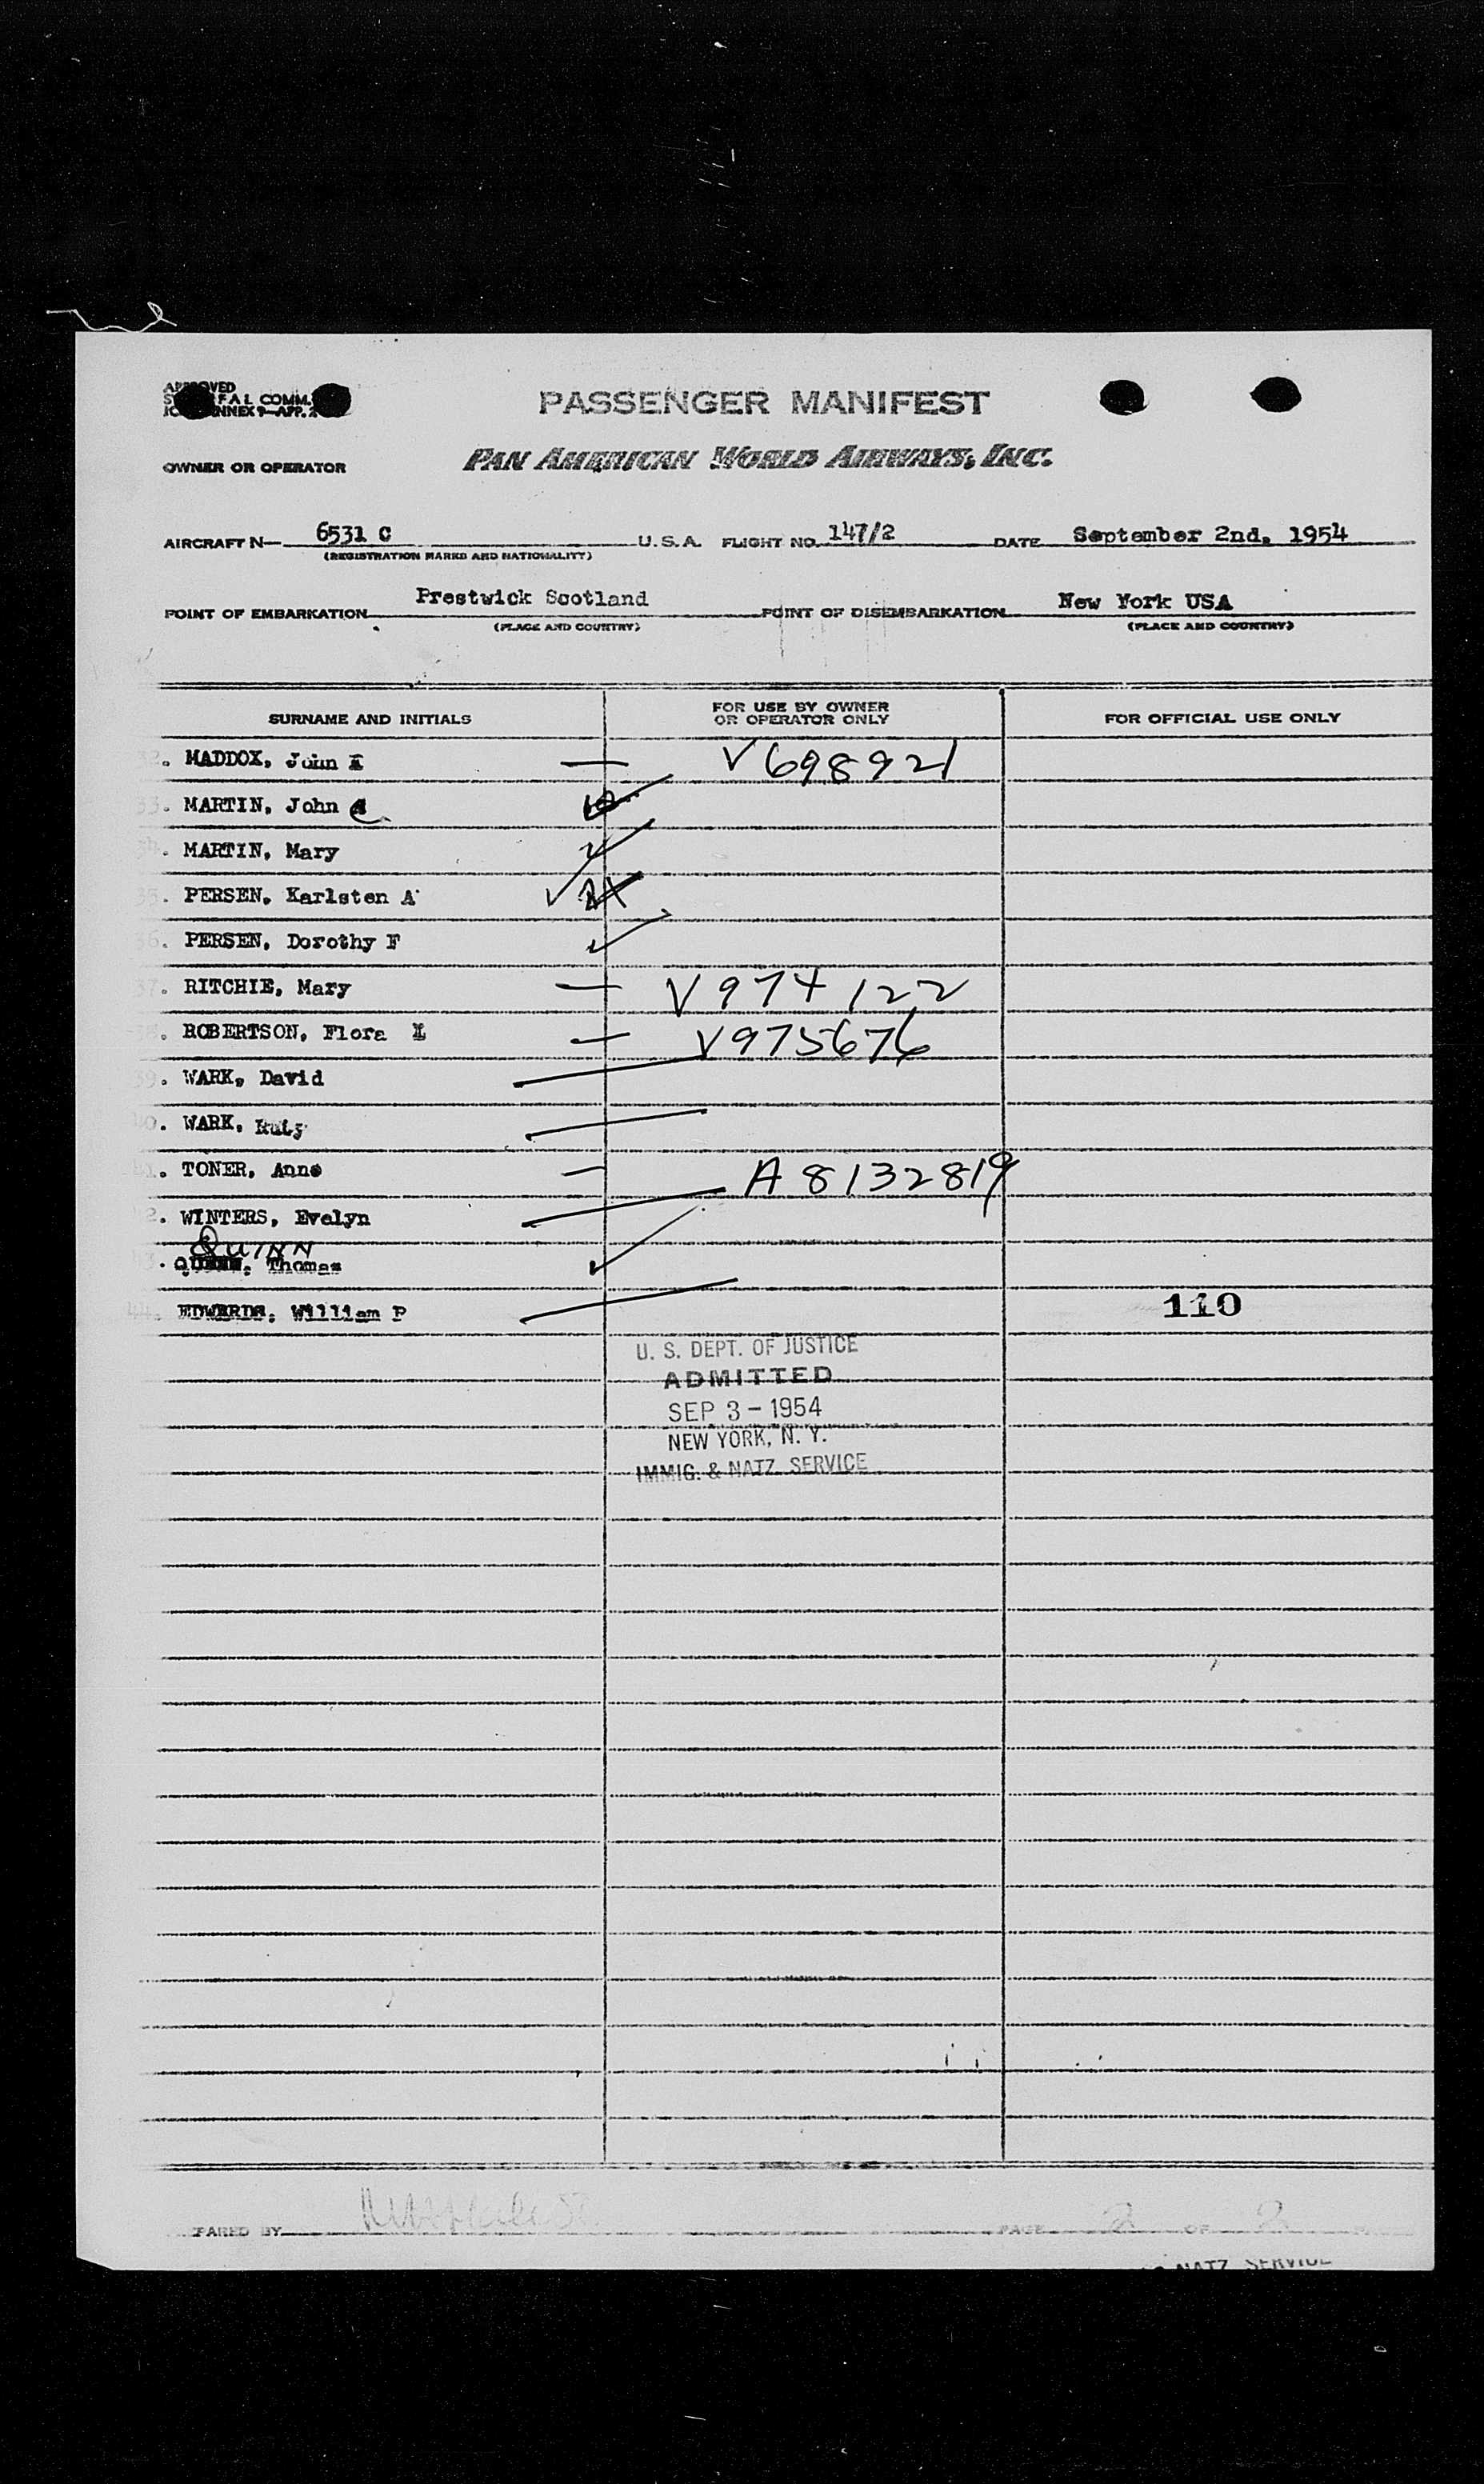 APPROVED
F A L COMM.
ANNEX 9—APP. 2
PASSENGER MANIFEST
OWNER OR OPERATOR PAN AMERICAN WORLD AIRWAYS, INC.
AIRCRAFT N— 6531 C U.S.A. FLIGHT NO. 147/2 DATE September 2nd, 1954
(REGISTRATION MARKS AND NATIONALITY)
POINT OF EMBARKATION Prestwick Scotland POINT OF DISEMBARKATION New York USA
(PLACE AND COUNTRY) (PLACE AND COUNTRY)
SURNAME AND INITIALS FOR USE BY OWNER OR OPERATOR ONLY FOR OFFICIAL USE ONLY
. MADDOX, John — V698921
33. MARTIN, John C
34. MARTIN, Mary
35. PERSEN, Karlsten A
36. PERSEN, Dorothy F
37. RITCHIE, Mary — V974122
38. ROBERTSON, Flora — V975676
39. WARK, David
40. WARK,
41. TONER, Anne — A8132819
42. WINTERS, Evelyn
QUINN
43. Thomas
44. EDWARDS, William P 110
U. S. DEPT. OF JUSTICE
ADMITTED
SEP 3 - 1954
NEW YORK, N. Y.
IMMIG. & NATZ. SERVICE
PARED BY PAGE 2 OF 2
NATZ. SERVICE